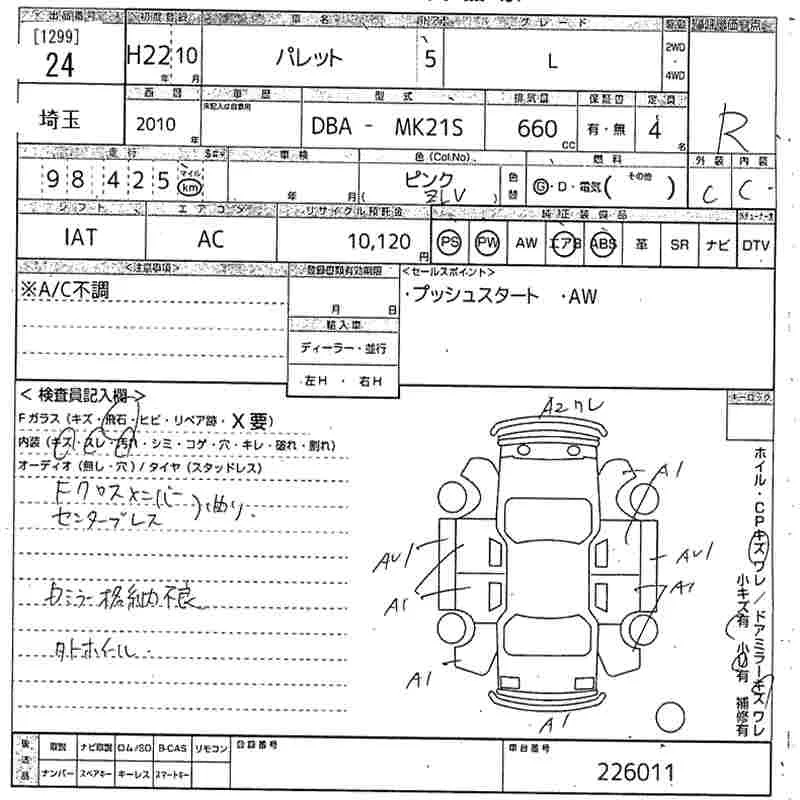 出品番号 初度登録 車名 ドア グレード 駆動 車輌評価点
[1299]
24 H22 10 パレット 5 L 2WD
年 月 ・
4WD
西暦 車歴 型式 排気量 保証書 定員
未記入は自家用
埼玉 2010 年 DBA - MK21S 660 CC 有・無 4 名 R
走行 車検 色 (Col.No) 燃料 外装 内装
98425 マイル km 年 月 ピンク 色替 G・D・電気( その他 ) C C-
( ZLV )
シフト エアコン リサイクル預託金 純正装備品
IAT AC 10,120 円 PS PW AW エアB ABS 革 SR ナビ DTV
<注意事項> 登録書類有効期限 <セールスポイント>
※A/C不調 月 日 ・プッシュスタート ・AW
輸入車
ディーラー・並行
左H ・ 右H
< 検査員記入欄 > キーロック
Fガラス (キズ・飛石・ヒビ・リペア跡・X要)
内装 (キズ・スレ・汚れ・シミ・コゲ・穴・キレ・破れ・割れ)
オーディオ (無し・穴) / タイヤ (スタッドレス)
Fクロスメンバー
センターブレス )曲り.
右ミラー格納不良
社外ホイール.
A2ワレ
A1
AU1 AU1
A1 A1
A1
A1
ホイル・CPキズワレ / ドアミラーキズワレ
小キズ有 小U有 補修有
後送品 取説 ナビ取説 ロム/SD B-CAS リモコン 登録番号 車台番号
ナンバー スペアキー キーレス スマートキー 226011